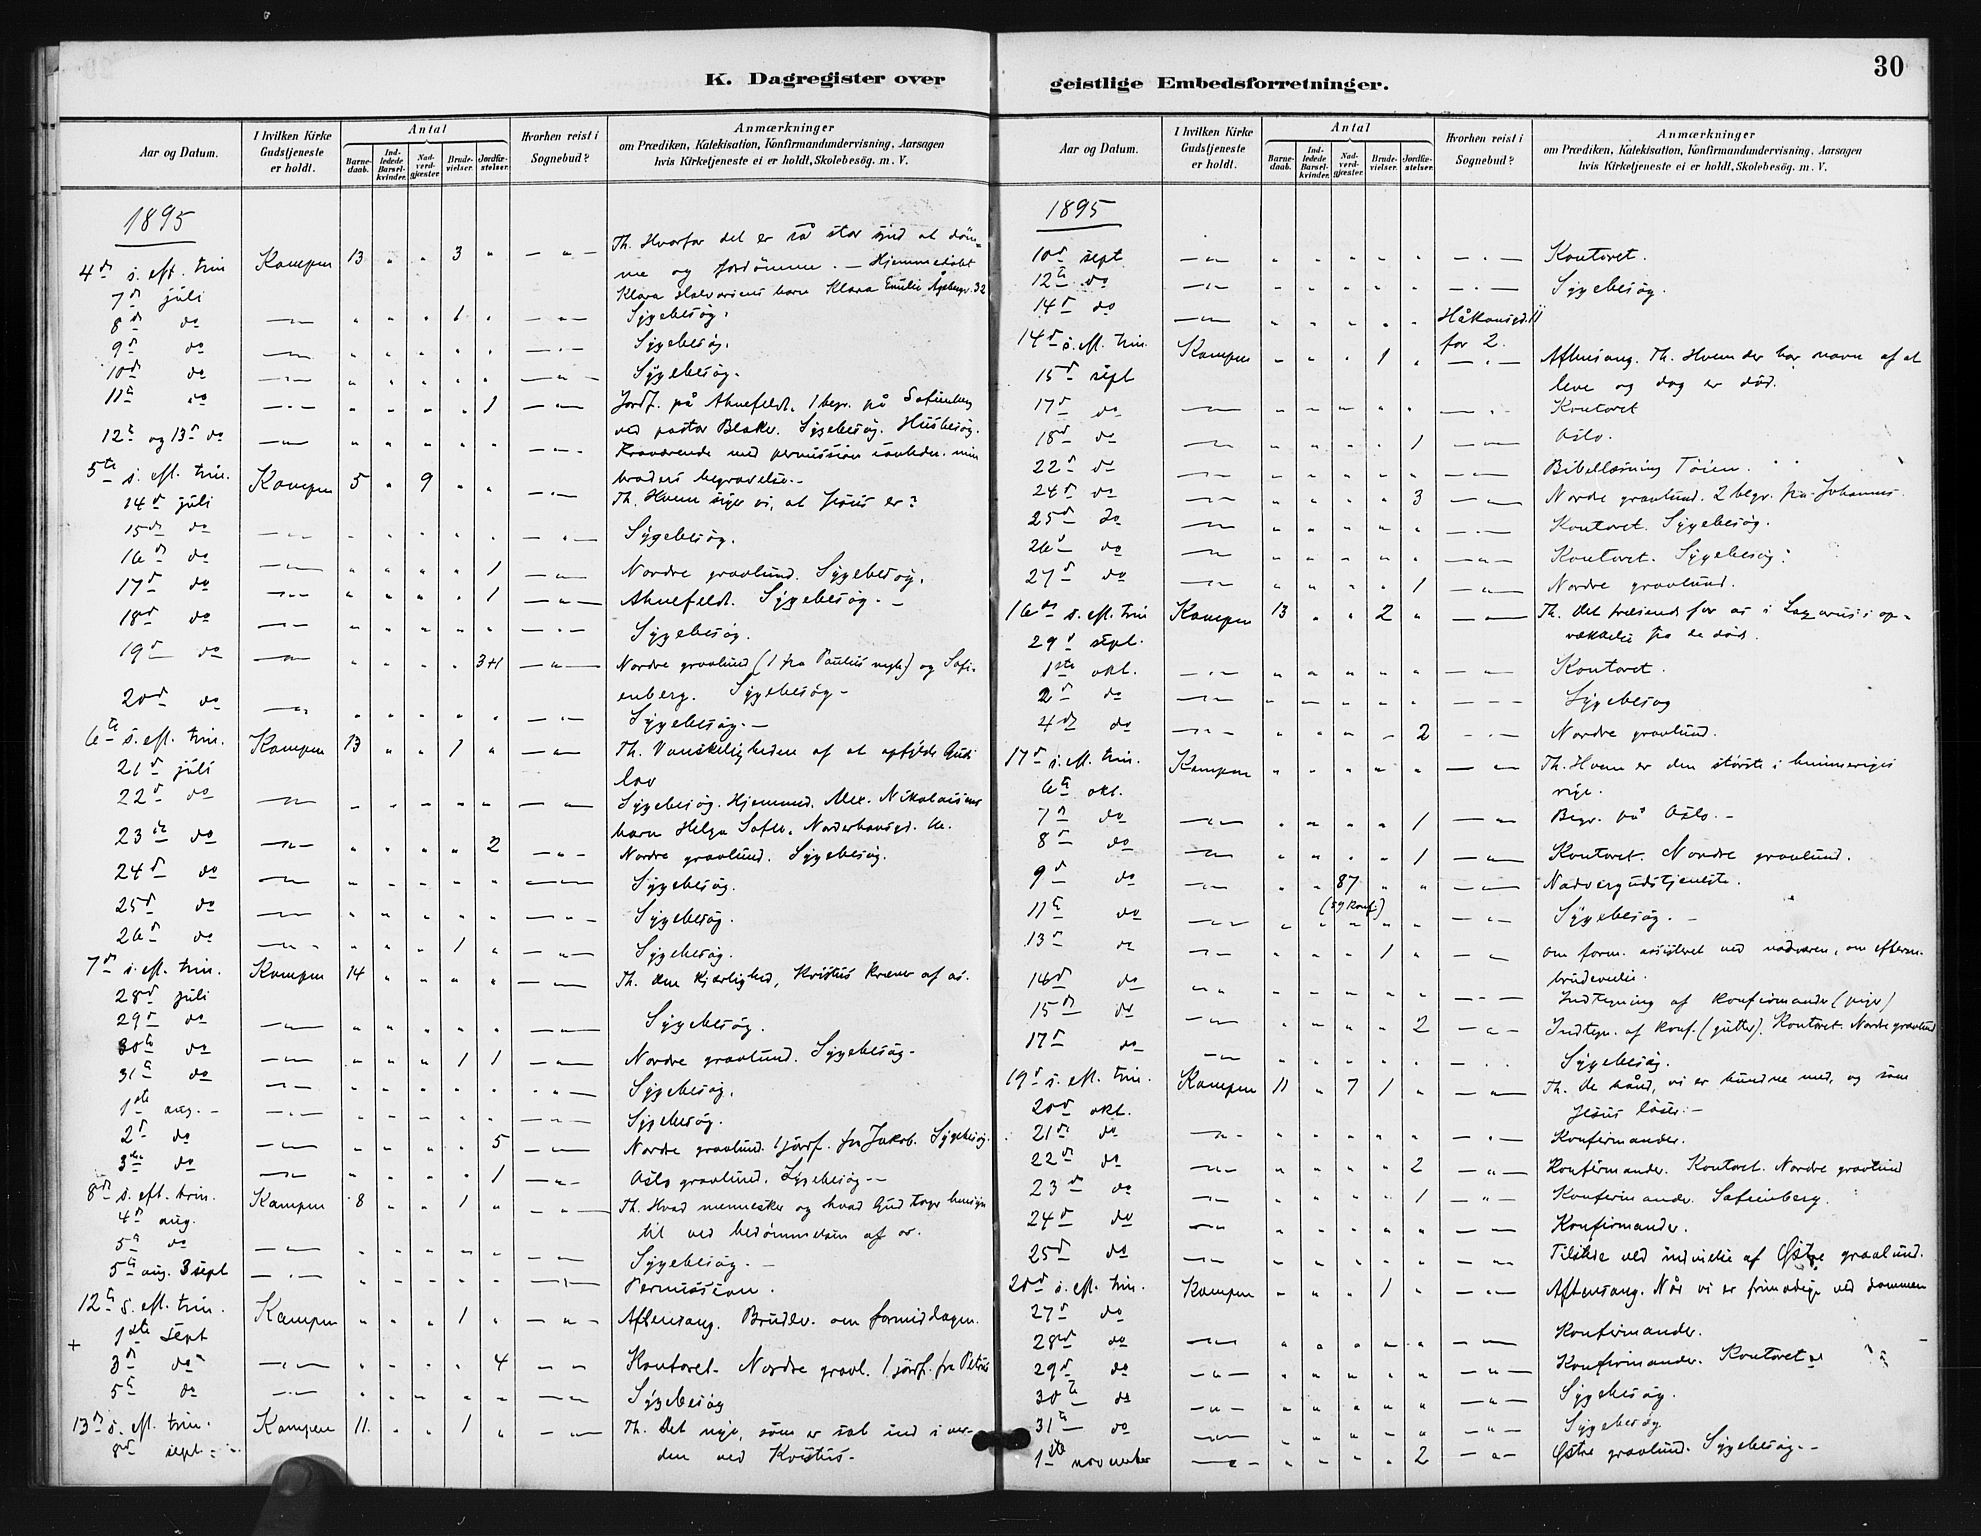 K. Dagregister over
geistlige Embedsforretninger.
30
Aar og Datum.
I hvilken Kirke Gudstjeneste er holdt.
Antal
Barnedaab.
Indledede Barselkvinder.
Nadverdgjæster
Brudevielser.
Jordfæstelser.
Hvorhen reist i Sognebud?
Anmærkninger
om Prædiken, Katekisation, Konfirmandundervisning, Aarsagen
hvis Kirketjeneste ei er holdt, Skolebesög. m. V.
1895
4de s. eft. trin Kampen 13 " " 3 " Th. Hvorfor det er så stor synd at döm-
7de juli me og fordömme. — Hjemmedöbt
Klara Halvorsens barn Klara Emilie Åkebergv. 32
8de do 1 Sygebesög.
9de do Sygebesög.
10de do Sygebesög.
11te do 1 Jordf. på Ahnefeldt. 1 begr. på Sofienberg
ved pastor Blaker. Sygebesög. Husbesög.
12te og 13de do Fraværende med permission
5te s. eft. trin. Kampen 5 " 9 " " broders begravelse.-
14de juli Th. Hvem siger vi, at Jesus er?
15de do Sygebesög.
16de do 1 Nordre gravlund. Sygebesög.
17de do 1 Ahnefeldt. Sygebesög. -
18de do Sygebesög.
19de do 3+1 Nordre gravlund (1 fra Paulus mgh) og Sofi-
enberg. Sygebesög -
20de do Sygebesög. -
6te s. eft. trin. Kampen 13 " " 1 " Th. Vanskeligheden af at opfylde Guds
21de juli lov
22de do Sygebesög. Hjemmed. Alex. Nikolaisens
barn Helga Sofie.
23de do 2 Nordre gravlund. Sygebesög.
24de do Sygebesög.
25de do Sygebesög.
26de do 1 Sygebesög.
7de s. eft. trin. Kampen 14 Th. den kjærlighed, Kristus kræver af os.
28de juli
29de do Sygebesög.
30te do 1 1 Nordre gravlund. Sygebesög-
31te do Sygebesög.
1ste aug. - Sygebesög.
2de do 5 Nordre gravlund. 1 jordf. fra Jakob. Sygebesög.
3die do 1 Oslo gravlund. Sygebesög--
8de s. eft. trin. Kampen 8 " " 1 " Th. Hvad mennesker og hvad Gud tager hensyn
4de aug. til ved bedömmelsen af os.
5te do Sygebesög. -
5te aug. 3 sept Permission.
12te s. eft. trin. Kampen " " " 1 " Aftensang. Brudev. om formiddagen.
+ 1ste sept
3de do 4 Kontoret- Nordre gravl. 1 jordf. fra Petrus
5te do Sygebesög
13de s. eft. trin. Kampen 11. " " 1 " Th. Det nye, som er sat ind i ver-
8de sept. den ved Kristus-
Aar og Datum.
I hvilken Kirke Gudstjeneste er holdt.
Antal
Barnedaab.
Indledede Barselkvinder.
Nadverdgjæster
Brudevielser.
Jordfæstelser.
Hvorhen reist i Sognebud?
Anmærkninger
om Prædiken, Katekisation, Konfirmandundervisning, Aarsagen
hvis Kirketjeneste ei er holdt, Skolebesög. m. V.
1895
10de sept Kontoret.
12te do Sygebesög.
14de do Håkonsgd. 11
for 2.
14de s. eft. trin. Kampen " " " 1 " Aftensang. Th. Hvem der har navn af at
15de sept leve og dog er död.
17de do Kontoret
18de do 1 Oslo.
22de do Bibellæsning Töien.
24de do 3 Nordre gravlund. 2 begr. fra Johannes.
25de do Kontoret. Sygebesög.
26de do Kontoret. Sygebesög.
27de do 1 Nordre gravlund.
16de s. eft. trin Kampen 13 " " 2 " Th. Det trösende for os i Lazarus's op-
29de sept. vækkelse fra de döde.
1ste okt. Kontoret.
2de do Sygebesög
4de do 2 Nordre gravlund.
17de s. eft. trin. Kampen Th. Hvem er den störste i himmeriges
6te okt. rige.
7de do 1 Begr. på Oslo. -
8de do 1 Kontoret. Nordre gravlund.
9de do 87 Nadvergudstjeneste.
(59 konf.)
11te do Sygebesög. -
13de do 1 om form. assisteret ved nadveren, om efterm.
brudevielse.
14de do Indtegning af konfirmander (piger)
15de do 2 Indtegn. af konf. (gutter). Kontoret. Nordre gravlund
17de do Sygebesög.
19de s. eft. trin. Kampen 11 " 7 1 " Th. De bånd, vi er bundne med, og som
20de okt. Jesus löser. -
21de do Konfirmander.
22de do 2 Konfirmander. Kontoret. Nordre gravlund
23de do 1 Konfirmander. Sofienberg.
24de do Konfirmander.
25de do Tilstede ved indvielse af Østre gravlund.
20de s. eft. trin. Kampen " " " 1 " Aftensang. Når vi er frimodige ved dommen
27de do
28de do Konfirmander.
29de do Konfirmander. Kontoret
30te do Sygebesög.
31te do Sygebesög
1ste november 2 Østre gravlund. Sygebesög.-